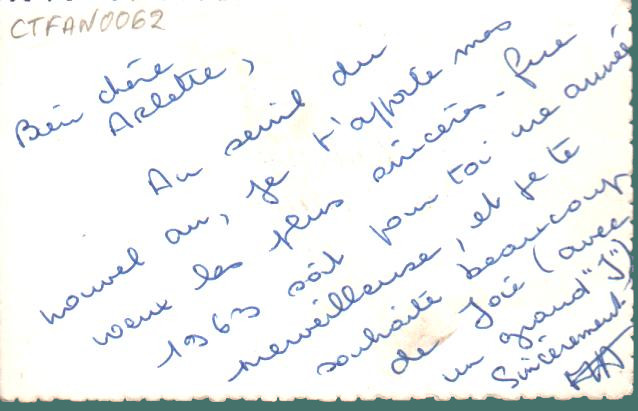 CTFAN0062
Bien chère
Arlette,
Au seuil du
nouvel an, je t'apporte mes
voeux les plus sincères - Que
1963 soit pour toi une année
merveilleuse, et je te
souhaite beaucoup
de Joie (avec
un grand "J")
Sincèrement